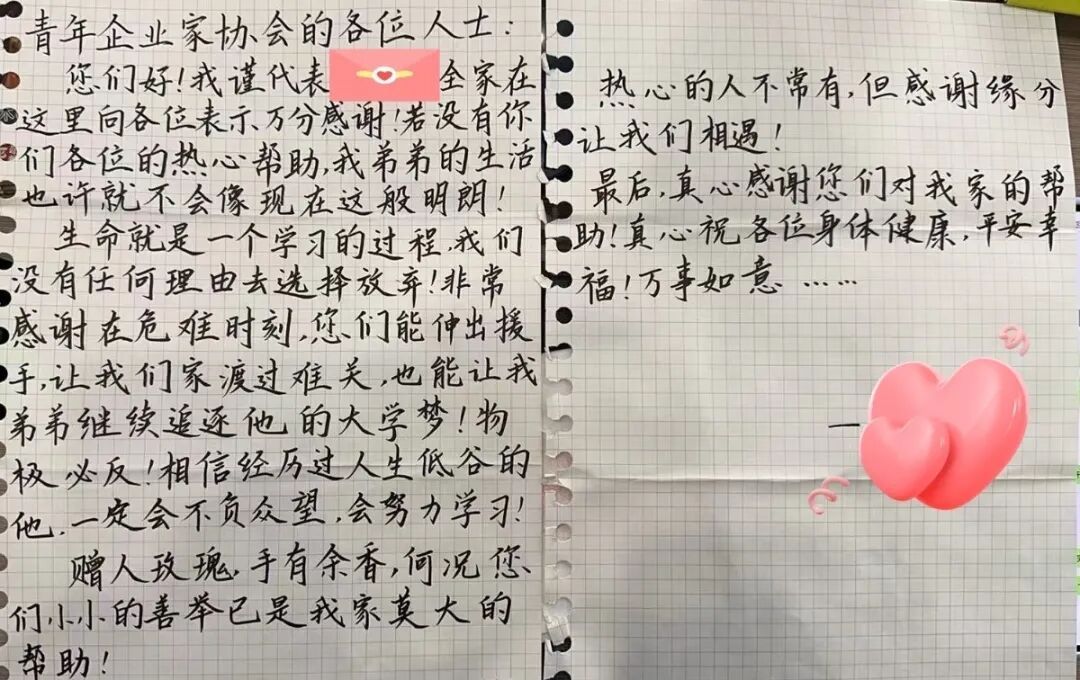 青年企业家协会的各位人士:
您们好!我谨代表 全家在
这里向各位表示万分感谢!若没有你
们各位的热心帮助,我弟弟的生活
也许就不会像现在这般明朗!
生命就是一个学习的过程,我们
没有任何理由去选择放弃!非常
感谢在危难时刻,您们能伸出援
手,让我们家渡过难关,也能让我
弟弟继续追逐他的大学梦!物
极必反!相信经历过人生低谷的
他,一定会不负众望,会努力学习!
赠人玫瑰,手有余香,何况您
们小小的善举已是我家莫大的
帮助!
热心的人不常有,但感谢缘分
让我们相遇!
最后,真心感谢您们对我家的帮
助!真心祝各位身体健康,平安幸
福!万事如意……